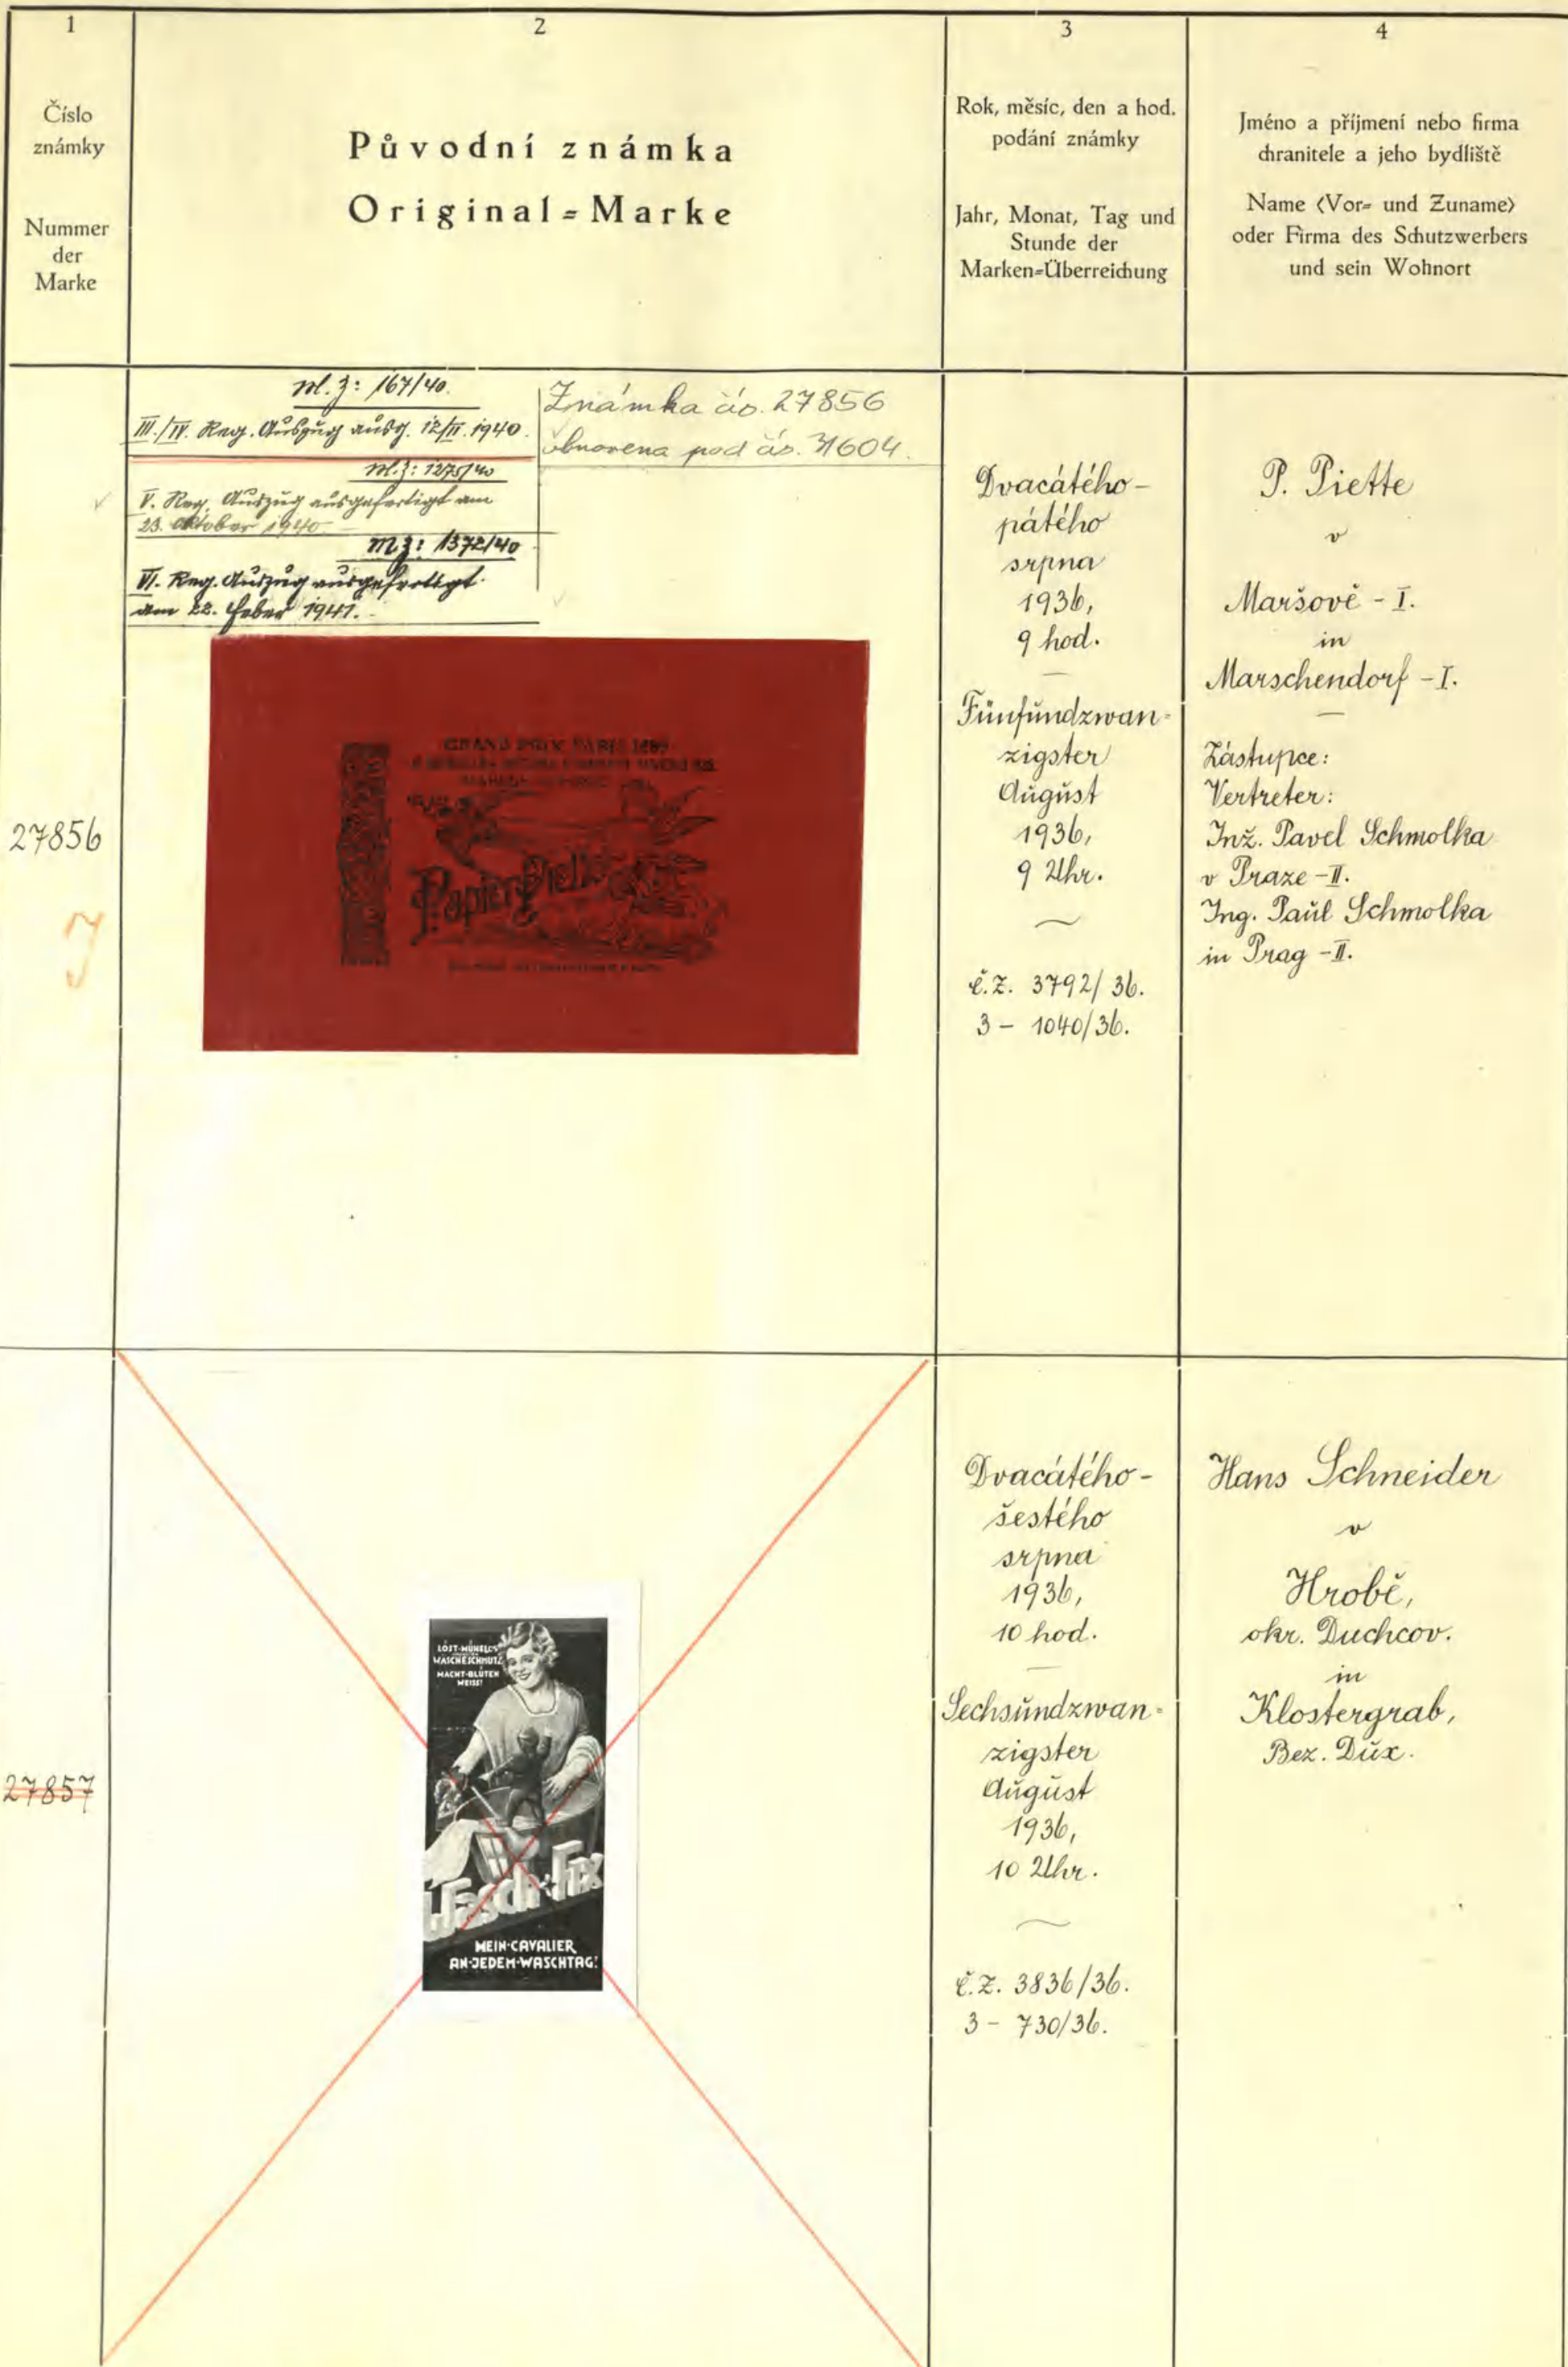 1
Číslo
známky
Nummer
der
Marke
2
Původní známka
Original=Marke
3
Rok, měsíc, den a hod.
podání známky
Jahr, Monat, Tag und
Stunde der
Marken=Überreichung
4
Jméno a příjmení nebo firma
chranitele a jeho bydliště
Name (Vor= und Zuname)
oder Firma des Schutzwerbers
und sein Wohnort
M. Z: 167/40.
III./IV. Reg. Auszug ausg. 12/II. 1940.
M. Z: 1275/40
V. Reg. Auszug ausgefertigt am
23. Oktober 1940
M Z: 1372/40
VI. Reg. Auszug ausgefertigt
am 22. Feber 1941.
Známka čís. 27856
obnovena pod čís. 31604.
27856
GRAND PRIX PARIS 1889
Papier Piette
Dvacátého-
pátého
srpna
1936,
9 hod.
Fünfundzwan-
zigster
August
1936,
9 Uhr.
č.z. 3792/36.
3 - 1040/36.
P. Piette
v
Maršově - I.
in
Marschendorf - I.
Zástupce:
Vertreter:
Inž. Pavel Schmolka
v Praze - II.
Ing. Paul Schmolka
in Prag - II.
27857
LÖST·MÜHELOS
WÄSCHESCHMUTZ
MACHT·BLÜTEN
WEISS!
Wasch·Fix
MEIN·CAVALIER
AN·JEDEM·WASCHTAG!
Dvacátého-
šestého
srpna
1936,
10 hod.
Sechsundzwan-
zigster
August
1936,
10 Uhr.
č.z. 3836/36.
3 - 730/36.
Hans Schneider
v
Hrobě,
okr. Duchcov.
in
Klostergrab,
Bez. Dux.